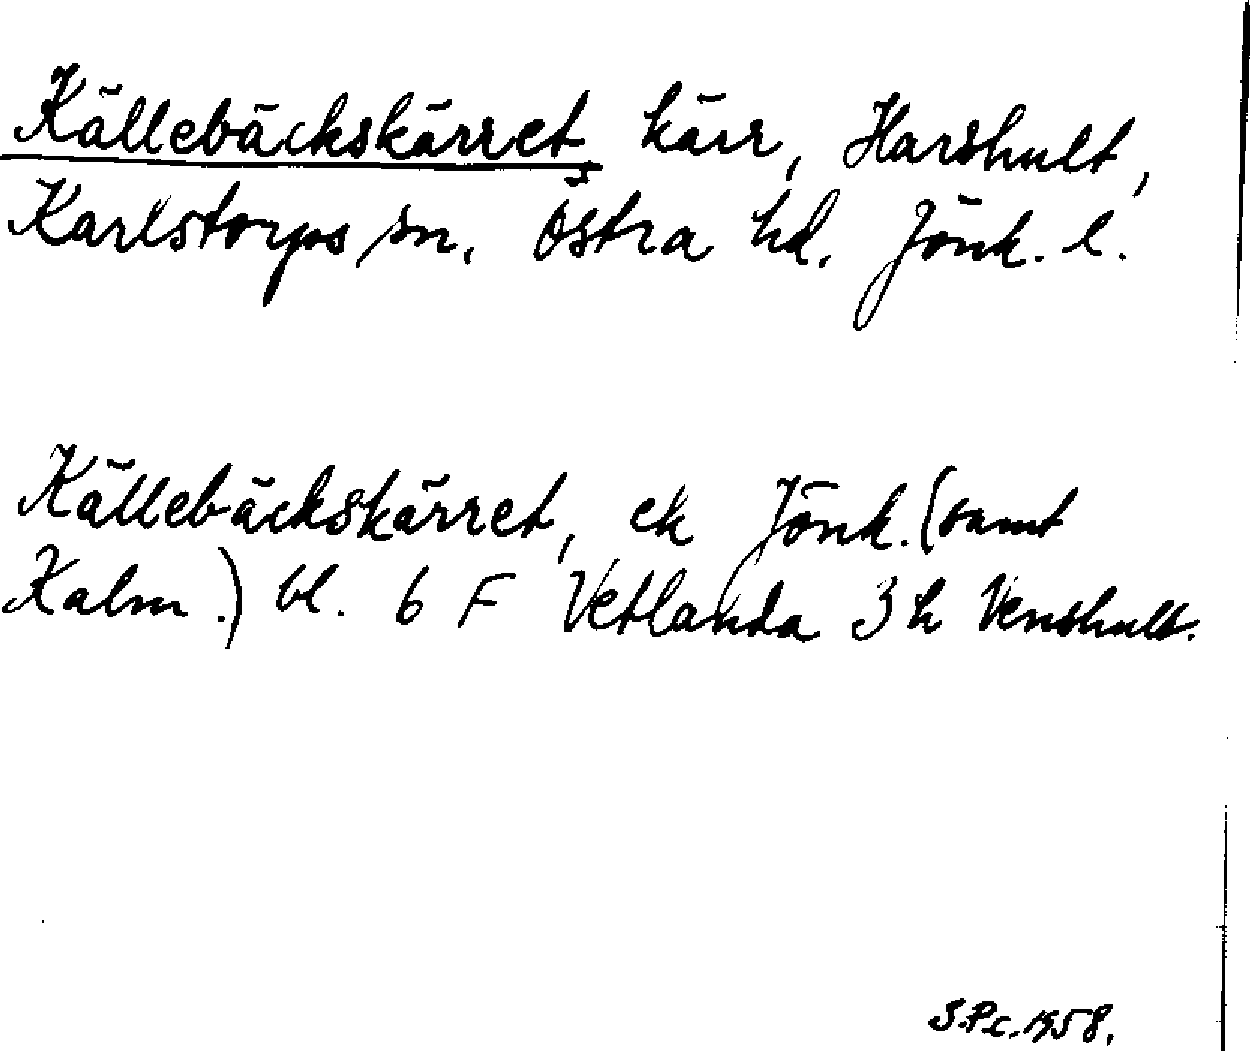 Källebäckskärret, kärr, Harshult,
Karlstorps sn. Östra hd. Jönk. l.
Källebäckskärret, ek Jönk. (samt
Kalm.) bl. 6 F Vetlanda 3 h Venshult.
S.P.c. 1958.